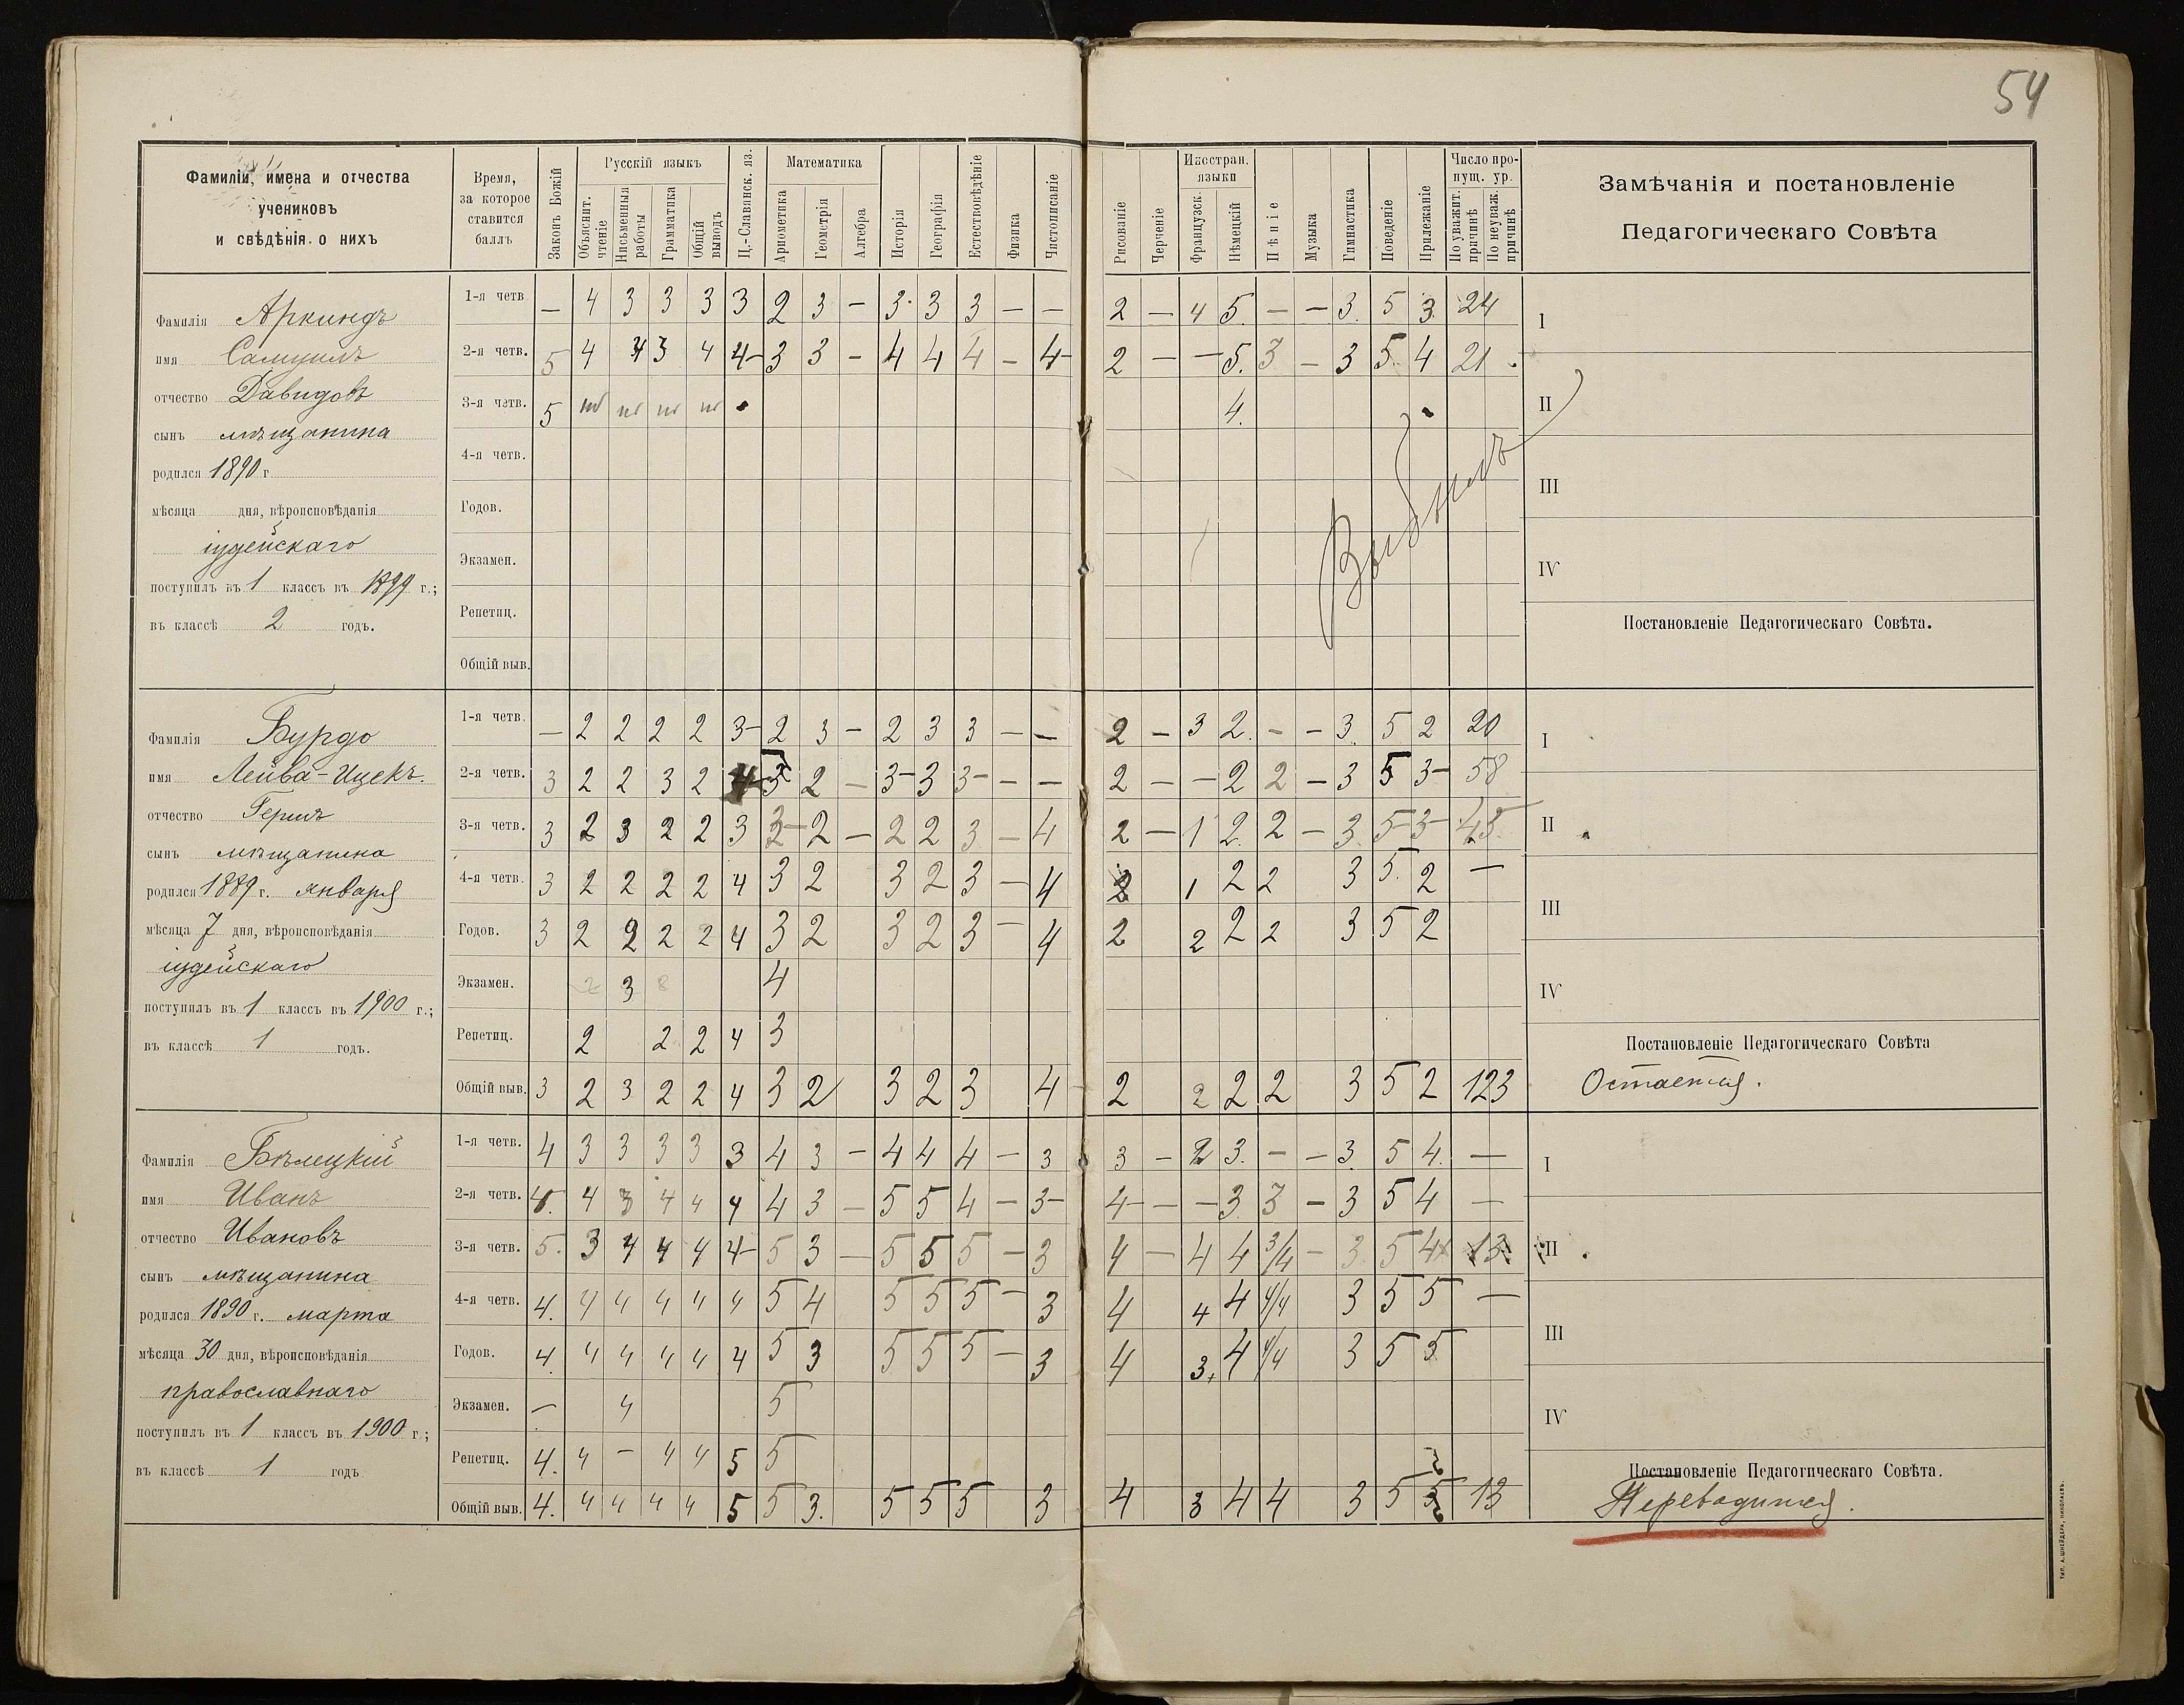 54
Фамиліи, имена и отчества
учениковъ
и свѣдѣнія о нихъ
Время,
за которое
ставится
баллъ
Законъ Божій
Русскій языкъ
Объяснит. чтеніе
Письменныя работы
Грамматика
Общій выводъ
Ц.-Славянск. яз.
Математика
Ариѳметика
Геометрія
Алгебра
Исторія
Географія
Естествовѣдѣніе
Физика
Чистописаніе
Рисованіе
Черченіе
Иностран. языки
Французск.
Нѣмецкій
Пѣніе
Музыка
Гимнастика
Поведеніе
Прилежаніе
Число пропущ. ур.
По уважит. причинѣ
По неуваж. причинѣ
Замѣчанія и постановленіе
Педагогическаго Совѣта
Фамилія Аркиндъ
имя Самуилъ
отчество Давидовъ
сынъ мѣщанина
родился 1890 г
мѣсяца дня, вѣроисповѣданія
іудейскаго
поступилъ въ 1 классъ въ 1899 г.;
въ классѣ 2 годъ.
1-я четв. — 4 3 3 3 3 2 3 — 3 3 3 — — 2 — 4 5. — — 3. 5 3. 24
2-я четв. 5 4 4 3 4 4 3 3 — 4 4 4 — 4 2 — — 5. 3 — 3 5. 4 21
3-я четв. 5 4.
4-я четв.
Годов.
Экзамен.
Репетиц.
Общій выв.
Выбылъ
I
II
III
IV
Постановленіе Педагогическаго Совѣта.
Фамилія Бурдо
имя Лейва-Ицекъ.
отчество Герша
сынъ мѣщанина
родился 1889 г. января
мѣсяца 7 дня, вѣроисповѣданія
іудейскаго
поступилъ въ 1 классъ въ 1900 г.;
въ классѣ 1 годъ.
1-я четв. — 2 2 2 2 3 2 3 — 2 3 3 — — 2 — 3 2. — — 3. 5 2 20
2-я четв. 3 2 2 3 2 3 2 — 3 3 3 — — 2 — — 2 2 — 3 5 3 58
3-я четв. 3 2 3 2 2 3 3 2 — 2 2 3 — 4 2 — 1 2 2 — 3 5 3 45
4-я четв. 3 2 2 2 2 4 3 2 3 2 3 — 4 2 1 2 2 3 5. 2 —
Годов. 3 2 2 2 2 4 3 2 3 2 3 — 4 2 2 2 2 3 5 2
Экзамен. 2 3 4
Репетиц. 2 2 2 4 3
Общій выв. 3 2 3 2 2 4 3 2 3 2 3 4 2 2 2 2 3 5 2 123
I
II
III
IV
Постановленіе Педагогическаго Совѣта
Остается.
Фамилія Бѣлецкій
имя Иванъ
отчество Ивановъ
сынъ мѣщанина
родился 1890 г. марта
мѣсяца 30 дня, вѣроисповѣданія
православнаго
поступилъ въ 1 классъ въ 1900 г.;
въ классѣ 1 годъ
1-я четв. 4 3 3 3 3 3 4 3 — 4 4 4 — 3 3 — 2 3. — — 3. 5 4. —
2-я четв. 4 3 4 4 4 4 3 — 5 5 4 — 3 4 — — 3 3 — 3 5 4 —
3-я четв. 5. 3 4 4 4 4 5 3 — 5 5 5 — 3 4 — 4 4 3/4 — 3 5 4 13
4-я четв. 4. 4 4 4 4 4 5 4 5 5 5 — 3 4 4 4 4/4 3 5 5 —
Годов. 4 4 4 4 4 4 5 3 5 5 5 — 3 4 3. 4 4/4 3 5 5
Экзамен. — 4 5
Репетиц. 4. 4 — 4 4 5 5
Общій выв. 4. 4 4 4 4 5 5 3. 5 5 5 3 4 3 4 4 3 5 5 13
I
II
III
IV
Постановленіе Педагогическаго Совѣта.
Переводится.
ТИП. А. ШНЕЙДЕРА, НИКОЛАЕВЪ.